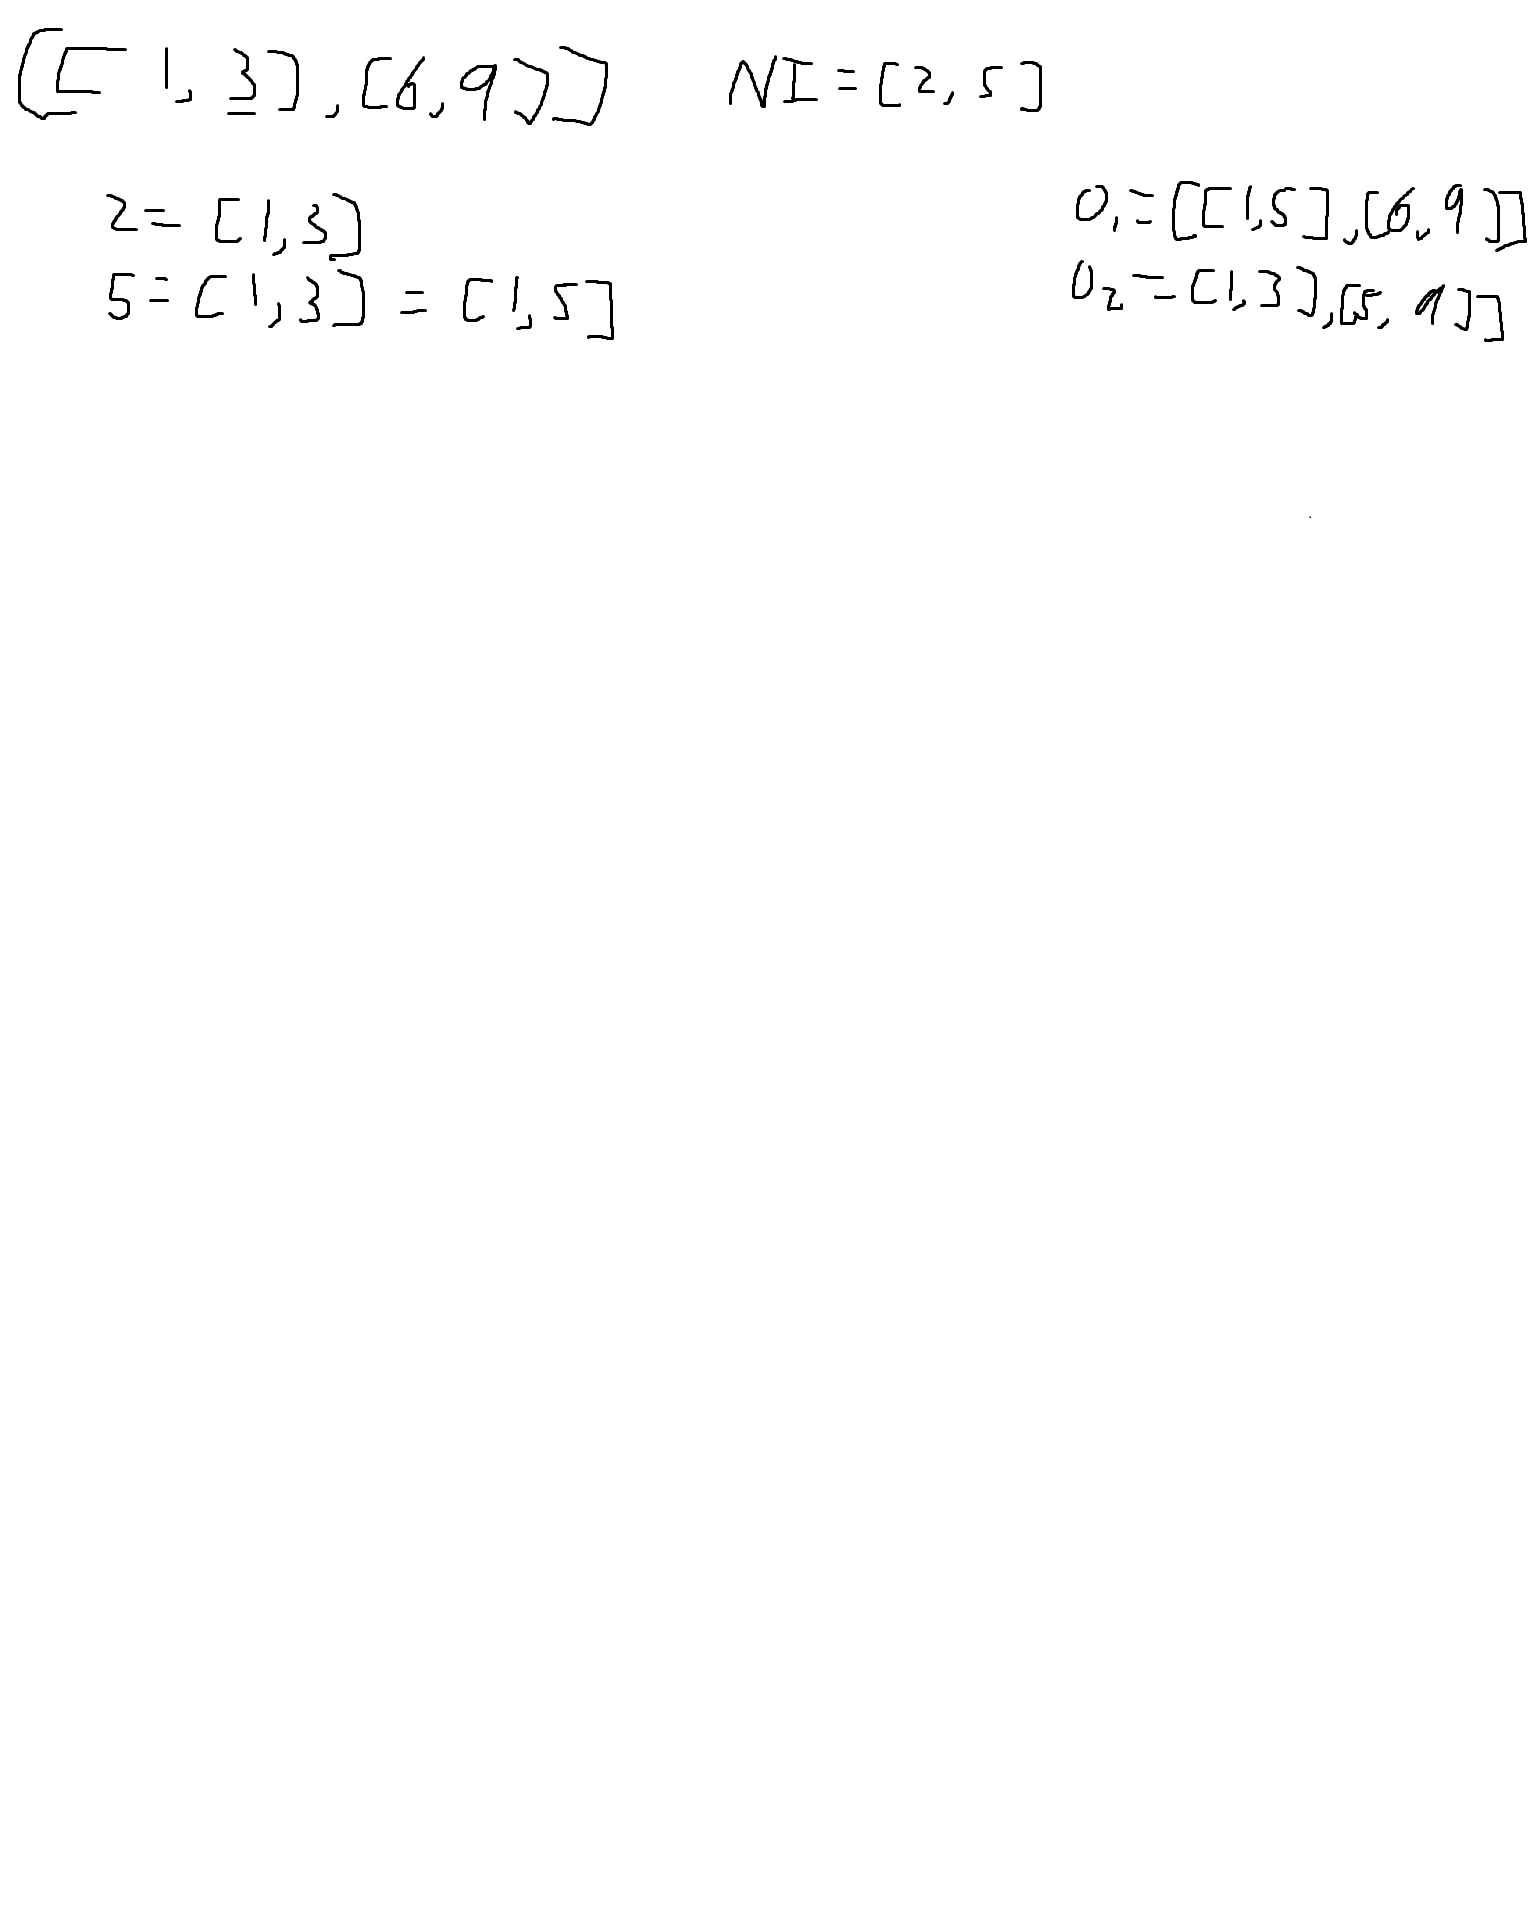 [[1,3],[6,9]] NI=[2,5]
2=[1,3]
5=[1,3]=[1,5]
O1=[[1,5],[6,9]]
O2=[1,3],[5,9]]